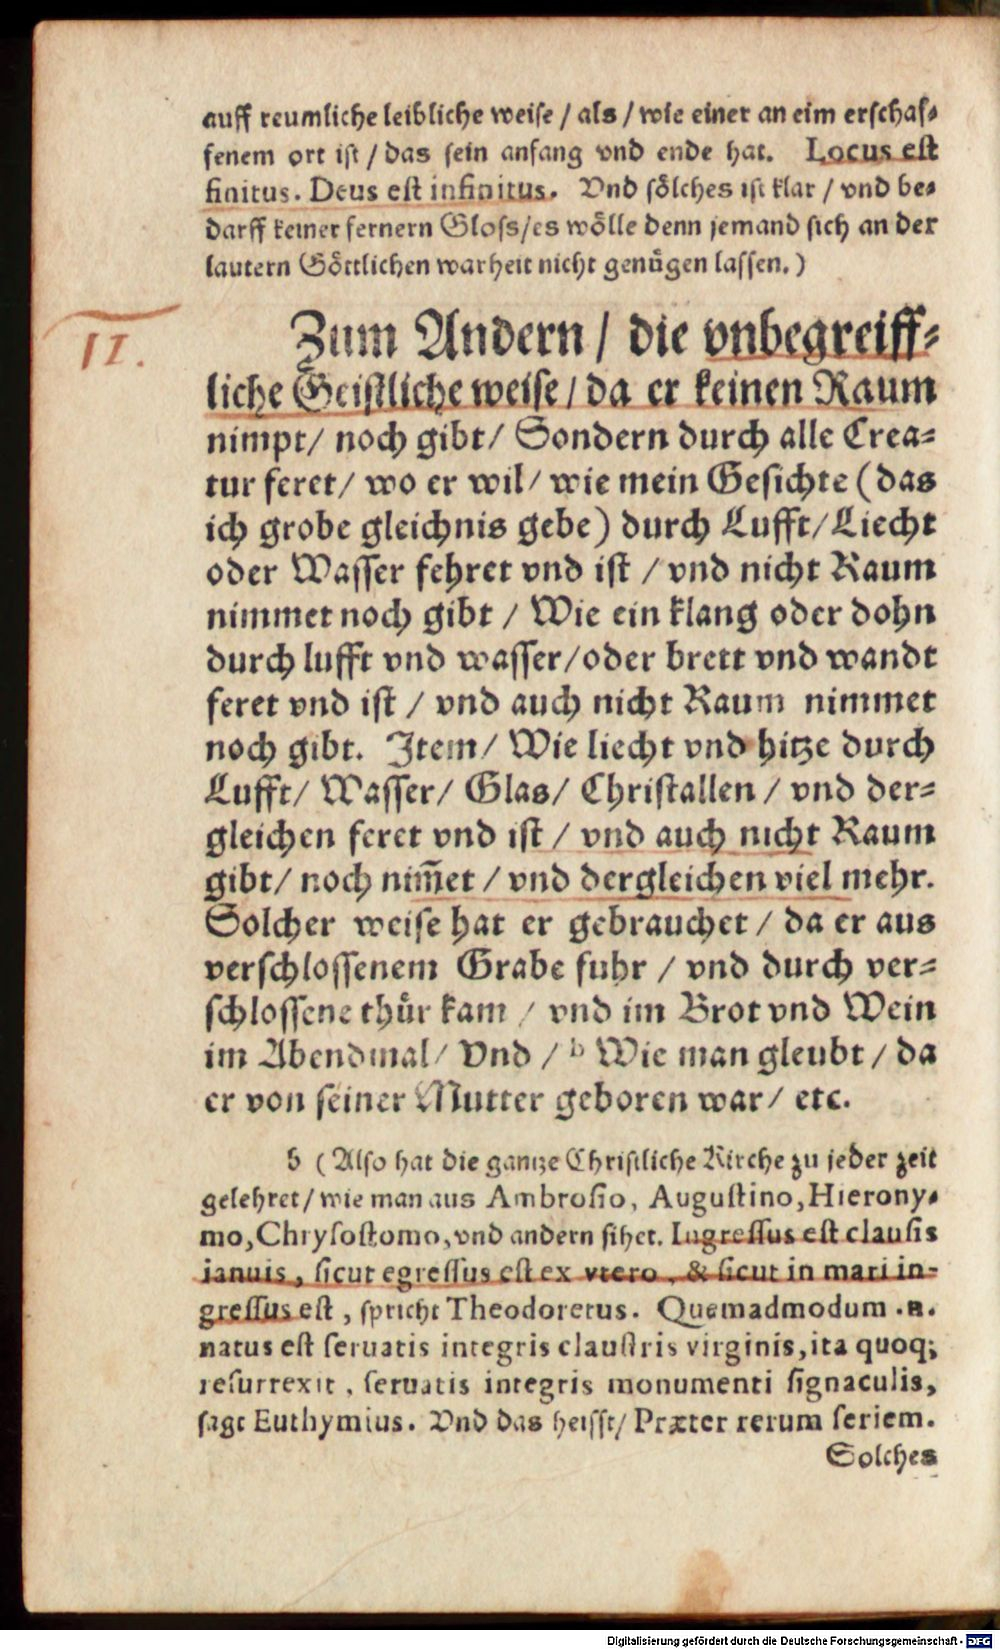 auff reumliche leibliche weise / als / wie einer an eim erschaf-
fenem ort ist / das sein anfang vnd ende hat. Locus est
finitus. Deus est infinitus. Vnd sölches ist klar / vnd be-
darff keiner fernern Gloss/es wölle denn jemand sich an der
lautern Göttlichen warheit nicht genügen lassen.)
II.
Zum Andern / die vnbegreiff-
liche Geistliche weise / da er keinen Raum
nimpt/ noch gibt/ Sondern durch alle Crea-
tur feret/ wo er wil/ wie mein Gesichte (das
ich grobe gleichnis gebe) durch Lufft/Liecht
oder Wasser fehret vnd ist / vnd nicht Raum
nimmet noch gibt / Wie ein klang oder dohn
durch lufft vnd wasser/oder brett vnd wandt
feret vnd ist / vnd auch nicht Raum nimmet
noch gibt. Item/ Wie liecht vnd hitze durch
Lufft/ Wasser/ Glas/ Christallen / vnd der-
gleichen feret vnd ist / vnd auch nicht Raum
gibt/ noch nim̄et / vnd dergleichen viel mehr.
Solcher weise hat er gebrauchet / da er aus
verschlossenem Grabe fuhr / vnd durch ver-
schlossene thür kam / vnd im Brot vnd Wein
im Abendmal/ Vnd / b Wie man gleubt / da
er von seiner Mutter geboren war/ etc.
b (Also hat die gantze Christliche Kirche zu jeder zeit
gelehret/ wie man aus Ambrosio, Augustino, Hierony-
mo, Chrysostomo, vnd andern sihet. Ingressus est clausis
ianuis, sicut egressus est ex vtero, & sicut in mari in-
gressus est, spricht Theodoretus. Quemadmodum .n.
natus est seruatis integris claustris virginis, ita quoq;
resurrexit, seruatis integris monumenti signaculis,
sagt Euthymius. Vnd das heisst/ Præter rerum seriem.
Solches
Digitalisierung gefördert durch die Deutsche Forschungsgemeinschaft - DFG